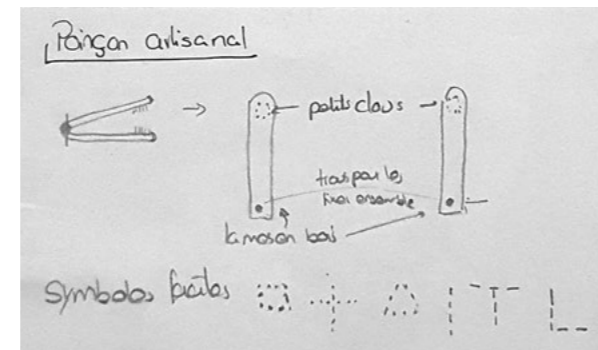 Poinçon artisanal
petits clous
trous pour les
fixer ensemble
lames en bois
Symboles faciles